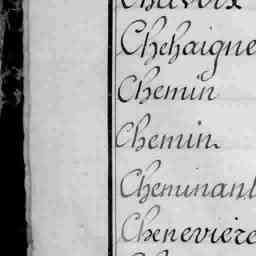 Chehaigne
Chemin
Chemin
Cheminant
Chenevière